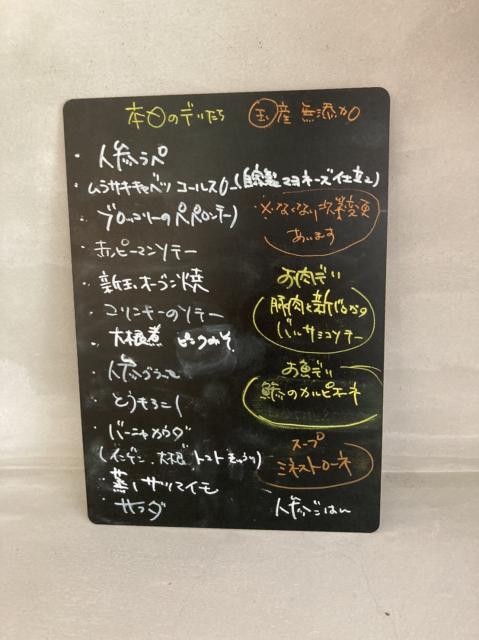 本日のデリたち 国産 無添加
・人参ラペ
・ムラサキキャベツ コールスロー(自家製マヨネーズ仕立て)
・ブロッコリーのペペロンチーノ
・赤ピーマンソテー
・新玉オーブン焼
・コリンキーのソテー
・大根煮 ピンクみそ
・人参グラッセ
・とうもろこし
・バーニャカウダ
(インゲン 大根 トマト きゅうり)
・蒸しサツマイモ
・サラダ
※なくなり次第変更
あります
お肉デリ
豚肉と新じゃがの
バルサミコソテー
お魚デリ
鯵のカルピオーネ
スープ
ミネストローネ
人参ごはん